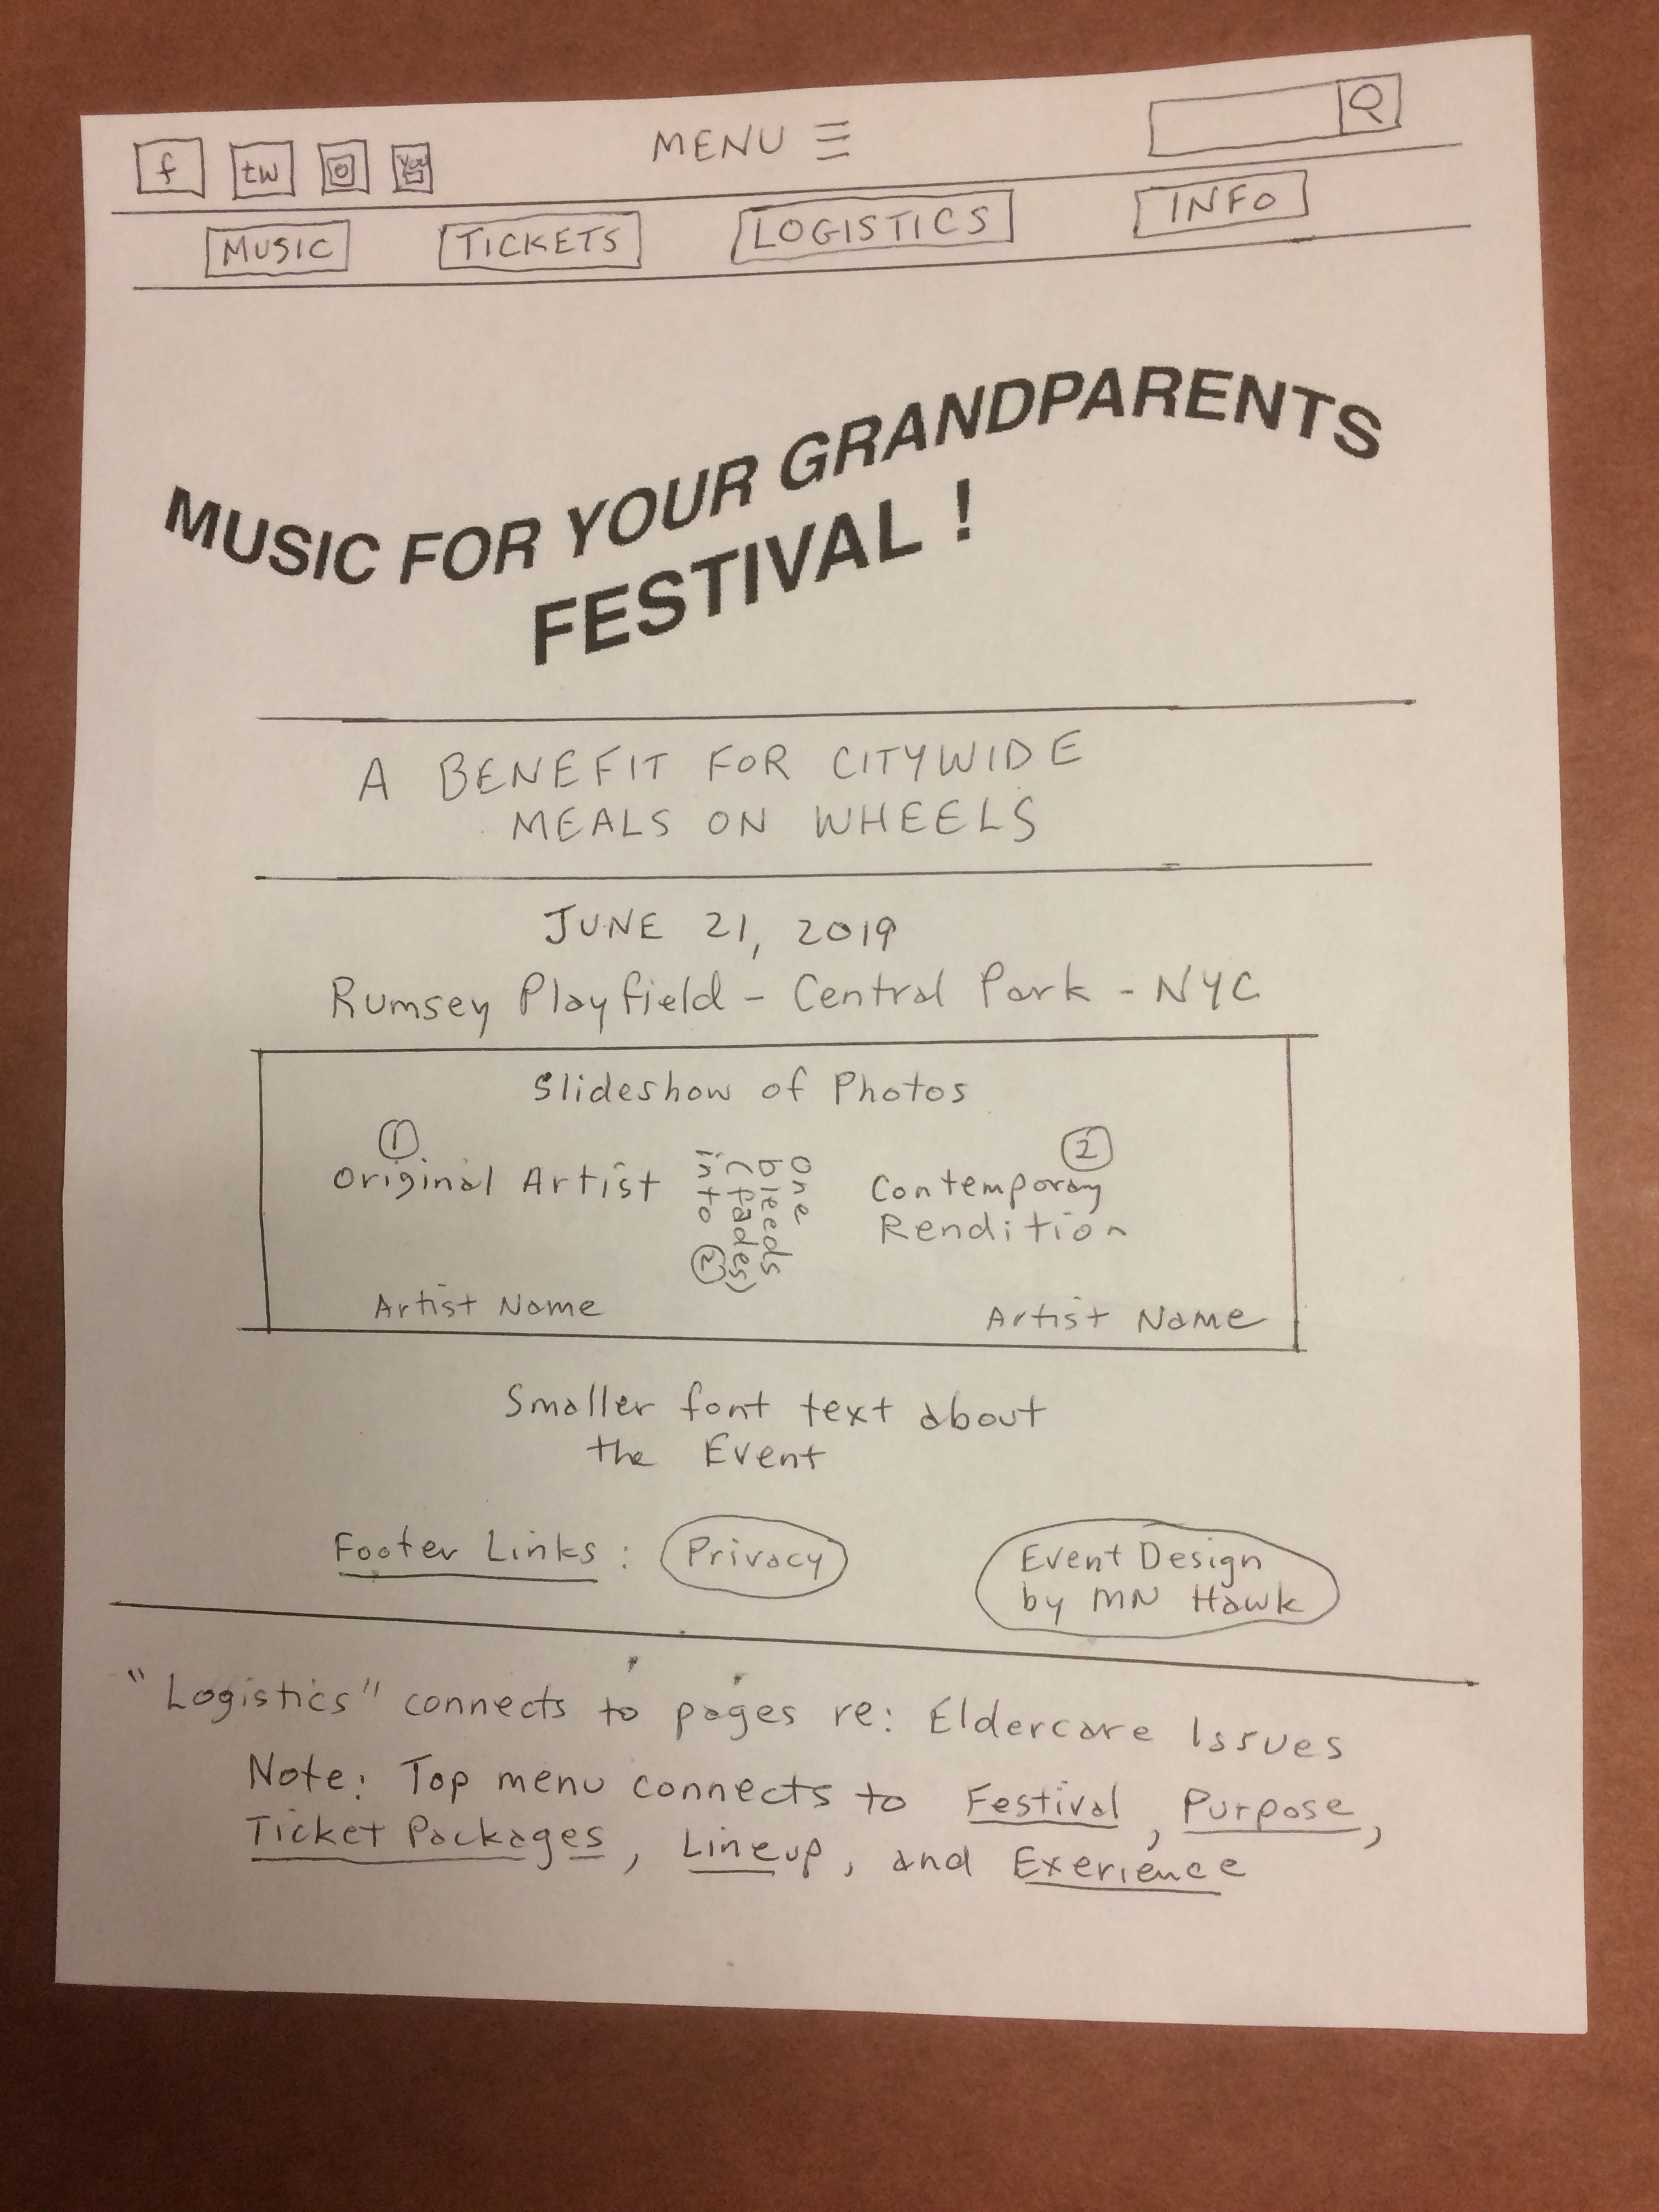 f tw You MENU
MUSIC TICKETS LOGISTICS INFO
MUSIC FOR YOUR GRANDPARENTS
FESTIVAL !
A BENEFIT FOR CITYWIDE
MEALS ON WHEELS
JUNE 21, 2019
Rumsey Playfield - Central Park - NYC
Slideshow of Photos
1
Original Artist
Artist Name
One
bleeds
(fades)
into 2
2
Contemporary
Rendition
Artist Name
Smaller font text about
the Event
Footer Links : Privacy
Event Design
by MN Hawk
"Logistics" connects to pages re: Eldercare Issues
Note: Top menu connects to Festival, Purpose,
Ticket Packages, Lineup, and Exerience